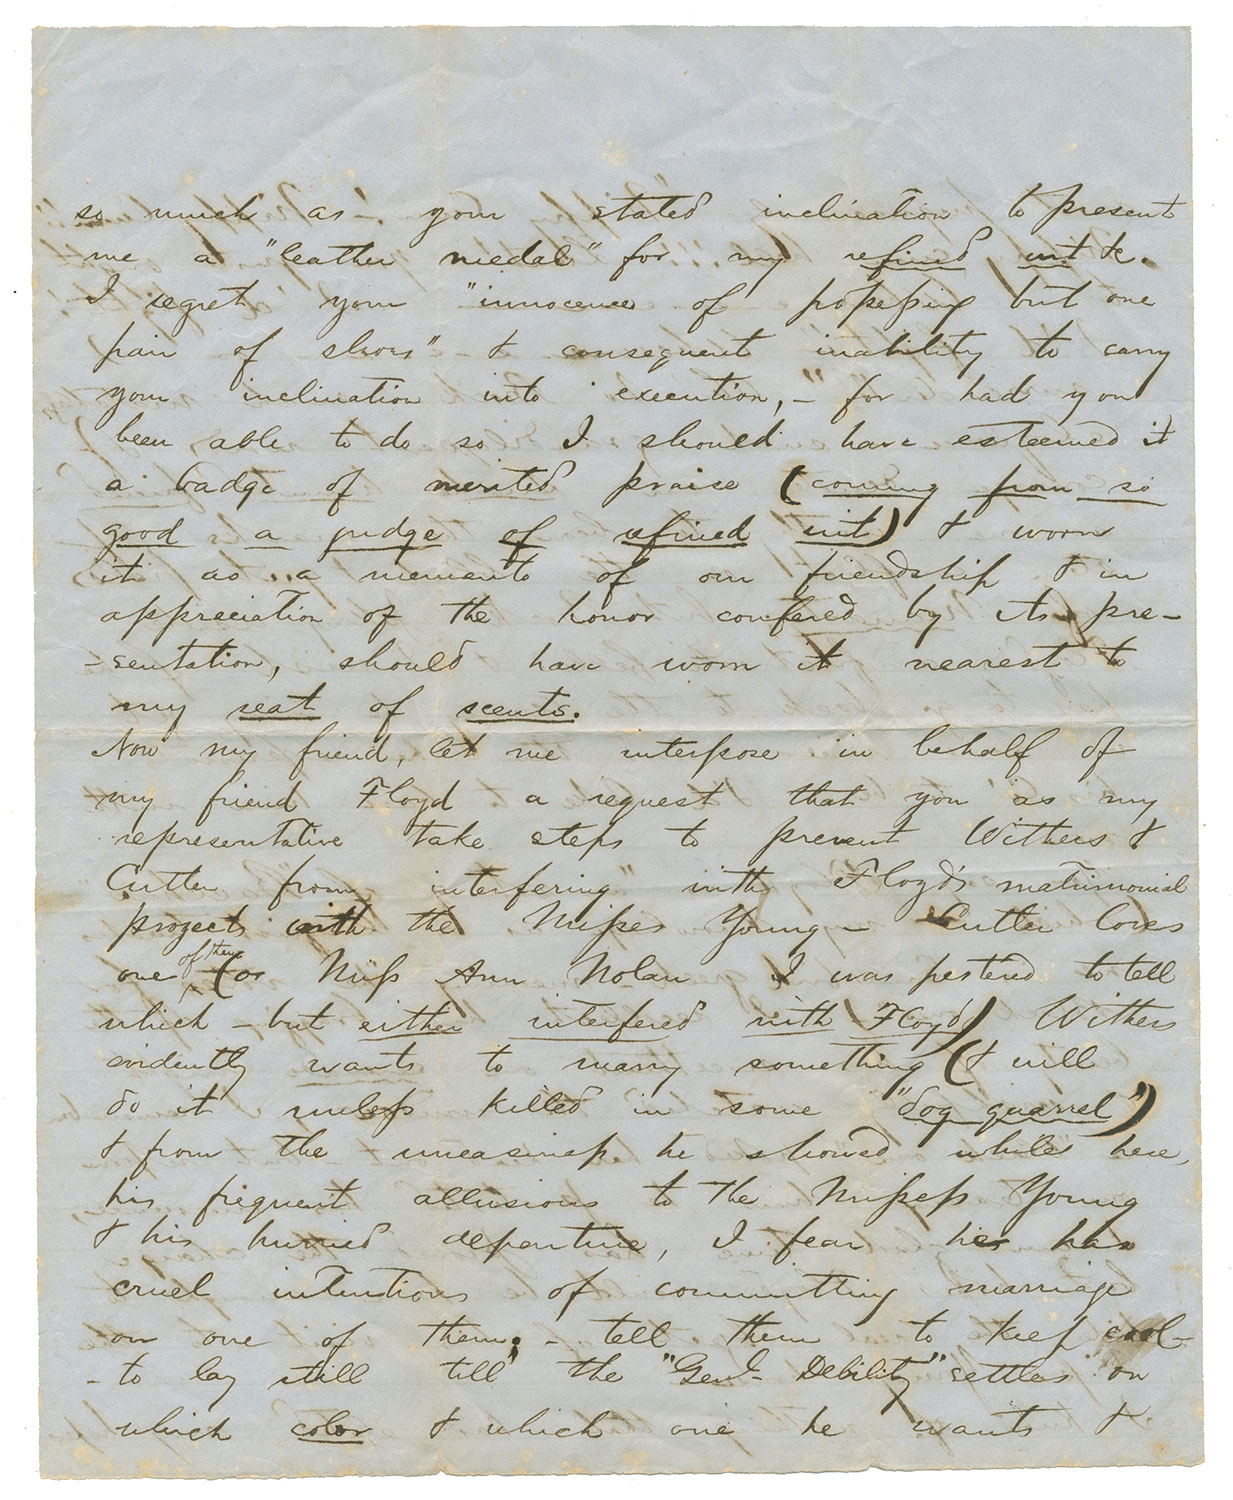 so much as - your stated inclination to present
me a "leather medal" for my refined wit &c.
I regret your "innocence of possessing but one
pair of shoes" - & consequent inability to carry
your inclination into execution," - for had you
been able to do so I should have esteemed it
a badge of merited praise (coming from so
good a judge of refined wit) & worn
it as a memento of our friendship & in
appreciation of the honor confered by its pre-
-sentation, should have worn it nearest to
my seat of scents.
Now my friend, let me interpose in behalf of
my friend Floyd a request that you as my
representative take steps to prevent Withers &
Cutler from "interfering" with Floyd's matrimonial
projects with the Misses Young - Cutler loves
one of them (or Miss Ann Nolan I was pestered to tell
which - but either interfered with Floyd) Withers
evidently wants to marry something (& will
do it unless killed in some "dog quarrel")
& from the uneasiness he showed while here,
his frequent allusions to the Missess Young
& his hurried departure, I fear he has
cruel intentions of committing marriage
on one of them; - tell them to keep cool -
- to lay still till the "Genl. Debility" settles on
which color & which one he wants &